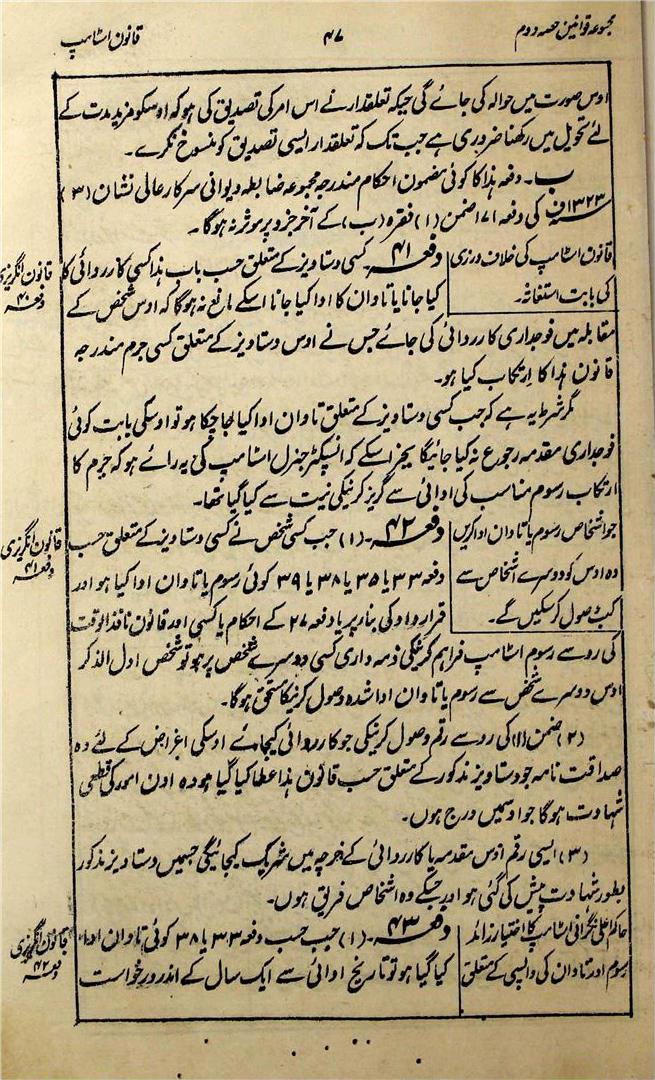 مجموعہ قوانین حصہ دوم
۴۷
قانون اسٹامپ
اوس صورت میں حوالہ کی جائے گی جبکہ تعلقدار نے اس امر کی تصدیق کی ہو کہ اوسکو مزید مدت کے
لئے تحویل میں رکھنا ضروری ہے جب تک کہ تعلقدار ایسی تصدیق کو منسوخ نکرے۔
ب۔ دفعہ ہذا کا کوئی مضمون احکام مندرجہ مجموعہ ضابطہ دیوانی سرکار عالی نشان (۳)
۱۳۲۳ف کی دفعہ ۱۷۱ ضمن (۱) فقرہ (ب) کے آخر جزو پر موثر نہ ہوگا۔
قانون اسٹامپ کی خلاف ورزی
کی بابت استغاثہ۔
دفعہ ۴۱۔ کسی دستاویز کے متعلق حسب باب ہذا کسی کارروائی کا
کیا جانا یا تاوان کا ادا کیا جانا اسکے مانع نہ ہوگا کہ اوس شخص کے
قانون انگریزی
دفعہ ۴۰
مقابلہ میں فوجداری کارروائی کی جائے جس نے اوس دستاویز کے متعلق کسی جرم مندرجہ
قانون ہذا کا ارتکاب کیا ہو۔
مگر شرط یہ ہے کہ جب کسی دستاویز کے متعلق تاوان ادا کیا جا چکا ہو تو اوسکی بابت کوئی
فوجداری مقدمہ رجوع نہ کیا جائیگا بجز اسکے کہ انسپکٹر جنرل اسٹامپ کی یہ رائے ہو کہ جرم کا
ارتکاب رسوم مناسب کی ادائی سے گریز کرنیکی نیت سے کیا گیا تھا۔
جو اشخاص رسوم یا تاوان ادا کریں
وہ اوس کو دوسرے اشخاص سے
کب وصول کرسکیں گے۔
دفعہ ۴۲۔ (۱) جب کسی شخص نے کسی دستاویز کے متعلق حسب
دفعہ ۳۳ یا ۳۵ یا ۳۸ یا ۳۹ کوئی رسوم یا تاوان ادا کیا ہو اور
قرارداد کی بناء پر یا دفعہ ۲۷ کے احکام یا کسی اور قانون نافذ الوقت
قانون انگریزی
دفعہ ۴۱
کی رو سے رسوم اسٹامپ فراہم کرنیکی ذمہ داری کسی دوسرے شخص پر ہو تو شخص اول الذکر
اوس دوسرے شخص سے رسوم یا تاوان ادا شدہ وصول کرنیکا مستحق ہوگا۔
(۲) ضمن (۱) کی رو سے رقم وصول کرنیکی جو کارروائی کیجائے اوسکی اغراض کے لئے وہ
صداقت نامہ جو دستاویز مذکور کے متعلق حسب قانون ہذا عطا کیا گیا ہو وہ اون امور کی قطعی
شہادت ہوگا جو اوسمیں درج ہوں۔
(۳) ایسی رقم اوس مقدمہ یا کارروائی کے خرچہ میں شریک کیجائیگی جسمیں دستاویز مذکور
بطور شہادت پیش کی گئی ہو اور جسکے وہ اشخاص فریق ہوں۔
حاکم اعلیٰ نگرانی اسٹامپ کا اختیار زائد
رسوم اور تاوان کی واپسی کے متعلق
دفعہ ۴۳۔ (۱) جب حسب دفعہ ۳۳ یا ۳۸ کوئی تاوان ادا
کیا گیا ہو تو تاریخ ادائی سے ایک سال کے اندر درخواست
قانون انگریزی
دفعہ ۴۲